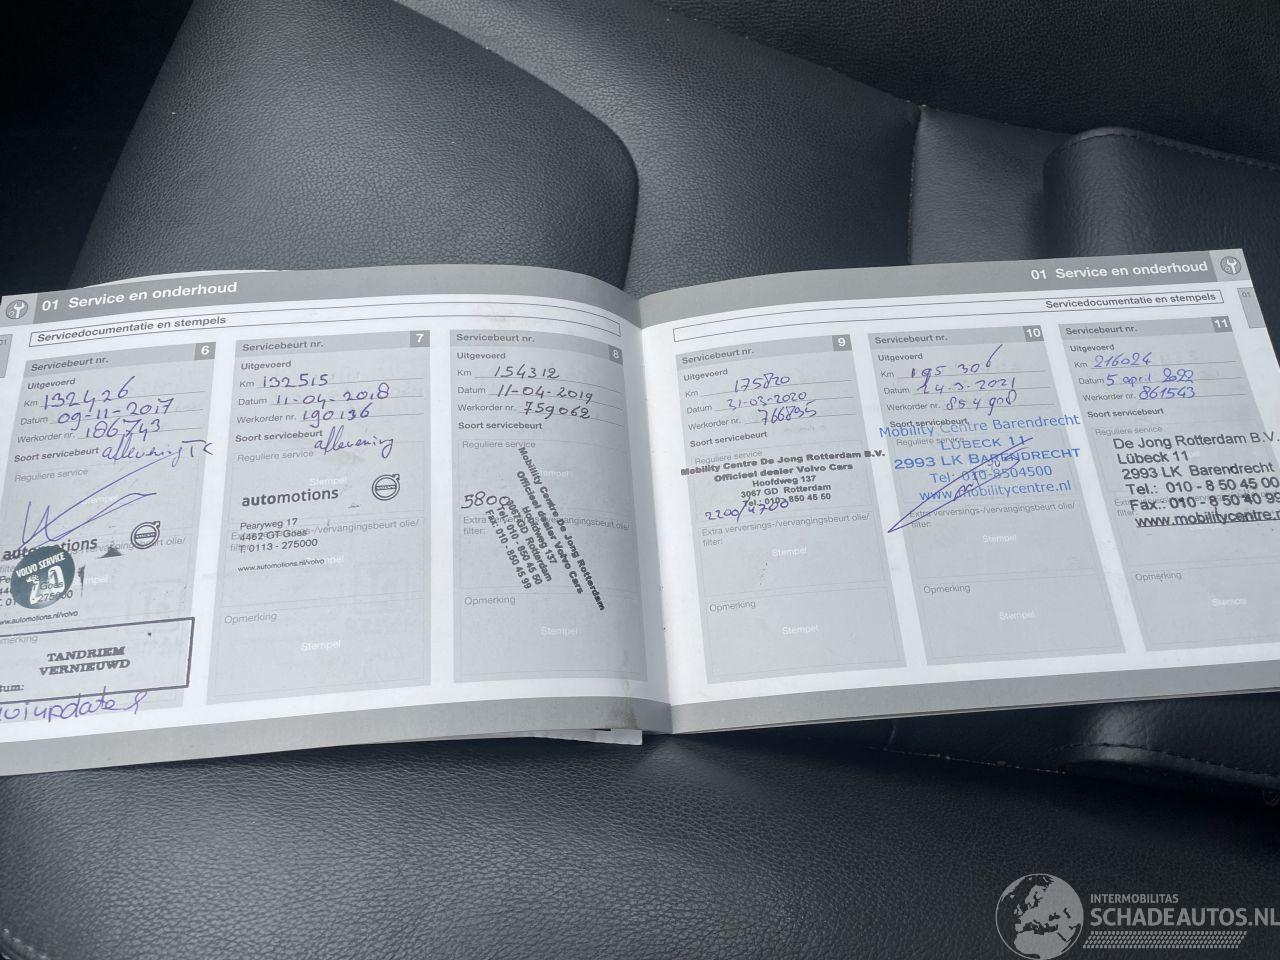 01 Service en onderhoud
Servicedocumentatie en stempels
01
Servicebeurt nr. 6
Uitgevoerd
Km 132426
Datum 09-11-2017
Werkorder nr. 186743
Soort servicebeurt aflevering TC
Reguliere service
automotions
olie/
VOLVO SERVICE
2.0
275000
www.automotions.nl/volvo
TANDRIEM
VERNIEUWD
Servicebeurt nr. 7
Uitgevoerd
Km 132515
Datum 11-04-2018
Werkorder nr. 190136
Soort servicebeurt aflevering
Reguliere service
Stempel
automotions
Pearyweg 17
4462 GT Goes
T. 0113 - 275000
www.automotions.nl/volvo
Opmerking
Stempel
Servicebeurt nr. 8
Uitgevoerd
Km 154312
Datum 11-04-2019
Werkorder nr. 759062
Soort servicebeurt
Reguliere service
5800
Mobility Centre De Jong Rotterdam
Officieel dealer Volvo Cars
Hoofdweg 137
3067 GD Rotterdam
Tel.: 010 - 850 45 50
Fax: 010 - 850 45 99
Extra verversings-/vervangingsbeurt olie/
filter:
Opmerking
Stempel
01 Service en onderhoud
Servicedocumentatie en stempels
01
Servicebeurt nr. 9
Uitgevoerd
Km 175820
Datum 31-03-2020
Werkorder nr. 766895
Soort servicebeurt
Reguliere service
Mobility Centre De Jong Rotterdam B.V.
Officieel dealer Volvo Cars
Hoofdweg 137
3067 GD Rotterdam
Tel.: 010 - 850 45 50
2200/4700
Extra verversings-/vervangingsbeurt olie/
filter:
Stempel
Opmerking
Stempel
Servicebeurt nr. 10
Uitgevoerd
Km 195 306
Datum 14-3-2021
Werkorder nr. 854908
Soort servicebeurt
Mobility Centre Barendrecht
Reguliere service
LÜBECK 11
2993 LK BARENDRECHT
Tel: 010-8504500
www.mobilitycentre.nl
Extra verversings-/vervangingsbeurt olie/
filter:
Stempel
Opmerking
Stempel
Servicebeurt nr. 11
Uitgevoerd
Km 216024
Datum 5 april 2022
Werkorder nr. 861543
Soort servicebeurt
Reguliere service
De Jong Rotterdam B.V.
Lübeck 11
2993 LK Barendrecht
Tel.: 010 - 8 50 45 00
Fax.: 010 - 8 50 40 99
www.mobilitycentre.n
Stempel
Opmerking
Stempel
INTERMOBILITAS
SCHADEAUTOS.NL